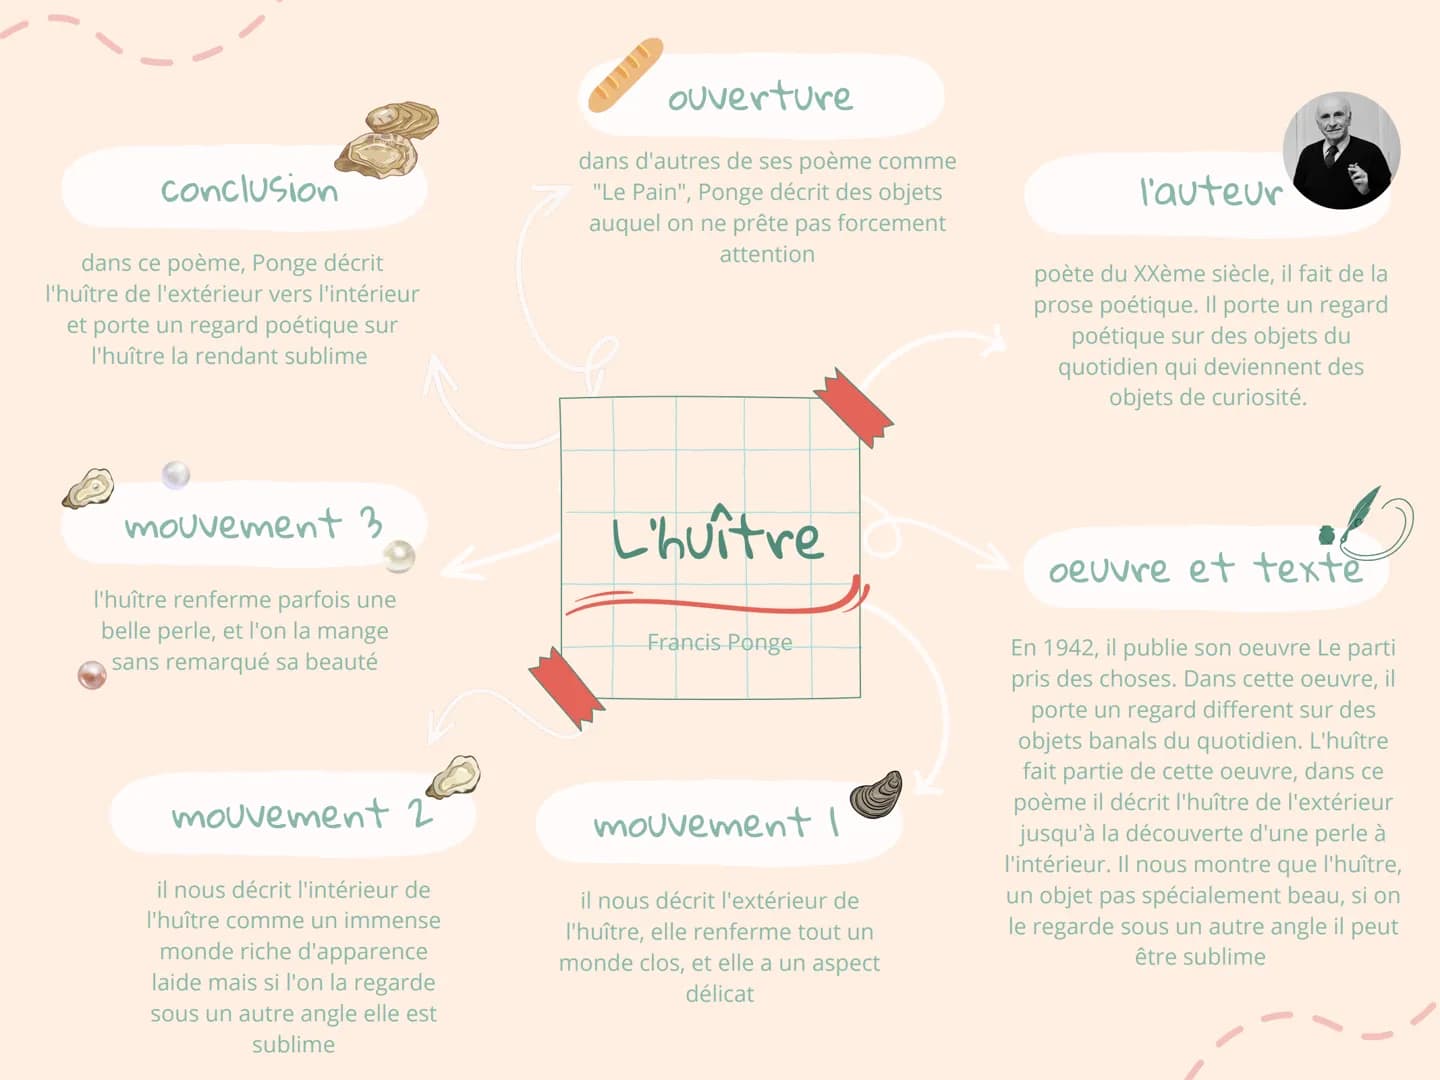 ouverture
dans d'autres de ses poème comme
"Le Pain", Ponge décrit des objets
auquel on ne prête pas forcement
attention
conclusion
dans ce poème, Ponge décrit
l'huître de l'extérieur vers l'intérieur
et porte un regard poétique sur
l'huître la rendant sublime
l'auteur
poète du XXème siècle, il fait de la
prose poétique. Il porte un regard
poétique sur des objets du
quotidien qui deviennent des
objets de curiosité.
L'huître
Francis Ponge
mouvement 3
l'huître renferme parfois une
belle perle, et l'on la mange
sans remarqué sa beauté
oeuvre et texte
En 1942, il publie son oeuvre Le parti
pris des choses. Dans cette oeuvre, il
porte un regard different sur des
objets banals du quotidien. L'huître
fait partie de cette oeuvre, dans ce
poème il décrit l'huître de l'extérieur
jusqu'à la découverte d'une perle à
l'intérieur. Il nous montre que l'huître,
un objet pas spécialement beau, si on
le regarde sous un autre angle il peut
être sublime
mouvement 2
il nous décrit l'intérieur de
l'huître comme un immense
monde riche d'apparence
laide mais si l'on la regarde
sous un autre angle elle est
sublime
mouvement 1
il nous décrit l'extérieur de
l'huître, elle renferme tout un
monde clos, et elle a un aspect
délicat